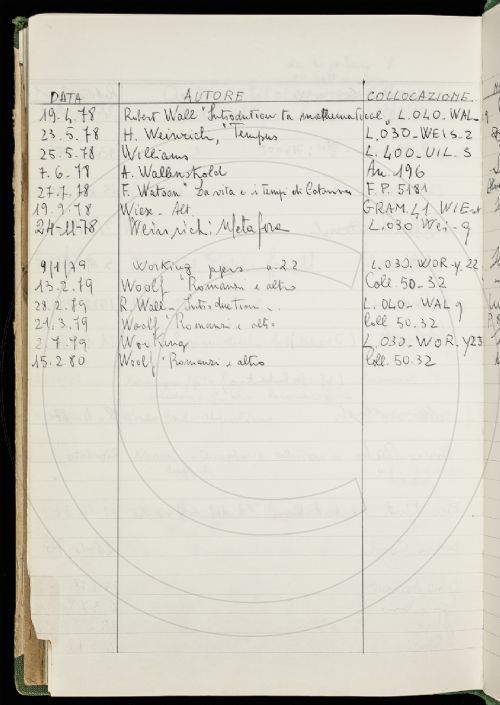 DATA AUTORE COLLOCAZIONE
19.4.78 Robert Wall "Introdution to mathematical" L.040-WAL-9
23.5.78 H. Weinrich, "Tempus L.030-WEIS.2
25.5.78 Williams L.400-UIL.S
7.6.78 A. Wallenskold An 196
27.7.78 F. Watson "La vita e i tempi di F.P. 5181
19.9.78 Wiex. Alt GRAM.41 WIE
24-11-78 Weinrich: Metafora L.030 Wei-9
9/1/79 Working ppers n.22 L.030-WOR-y.22
13.2.79 Woolf "Romanzi e altro Coll. 50.32
28.2.79 R. Wall - Introduction .. L.040-WAL 9
21.3.79 Woolf "Romanzi e altro Coll 50.32
2.7.79 Working L.030-WOR-y23
15.2.80 Woolf "Romanzi e altro Coll. 50.32